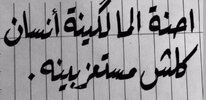 احنة المالگينة أنسان
كلش مستعزبينه .